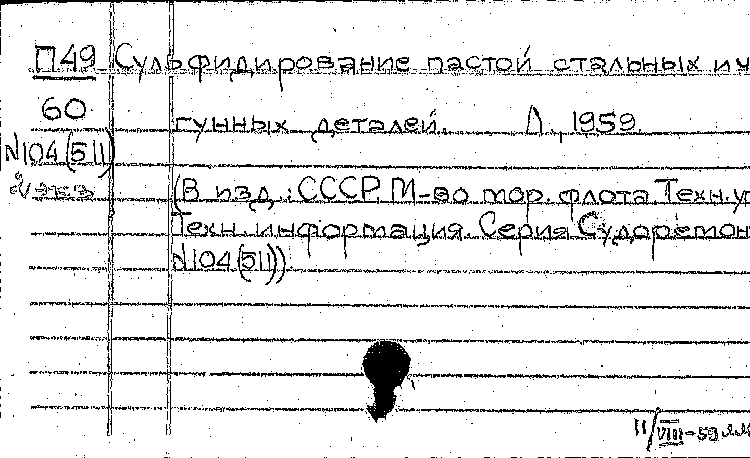 П49 Сульфидирование пастой стальных и ч
60 гунных деталей. Л., 1959.
N104(511)
2 экз (В изд.: СССР. М-во мор. флота. Техн. уп
Техн. информация. Серия Судоремон
N104(511))
11/VIII-59